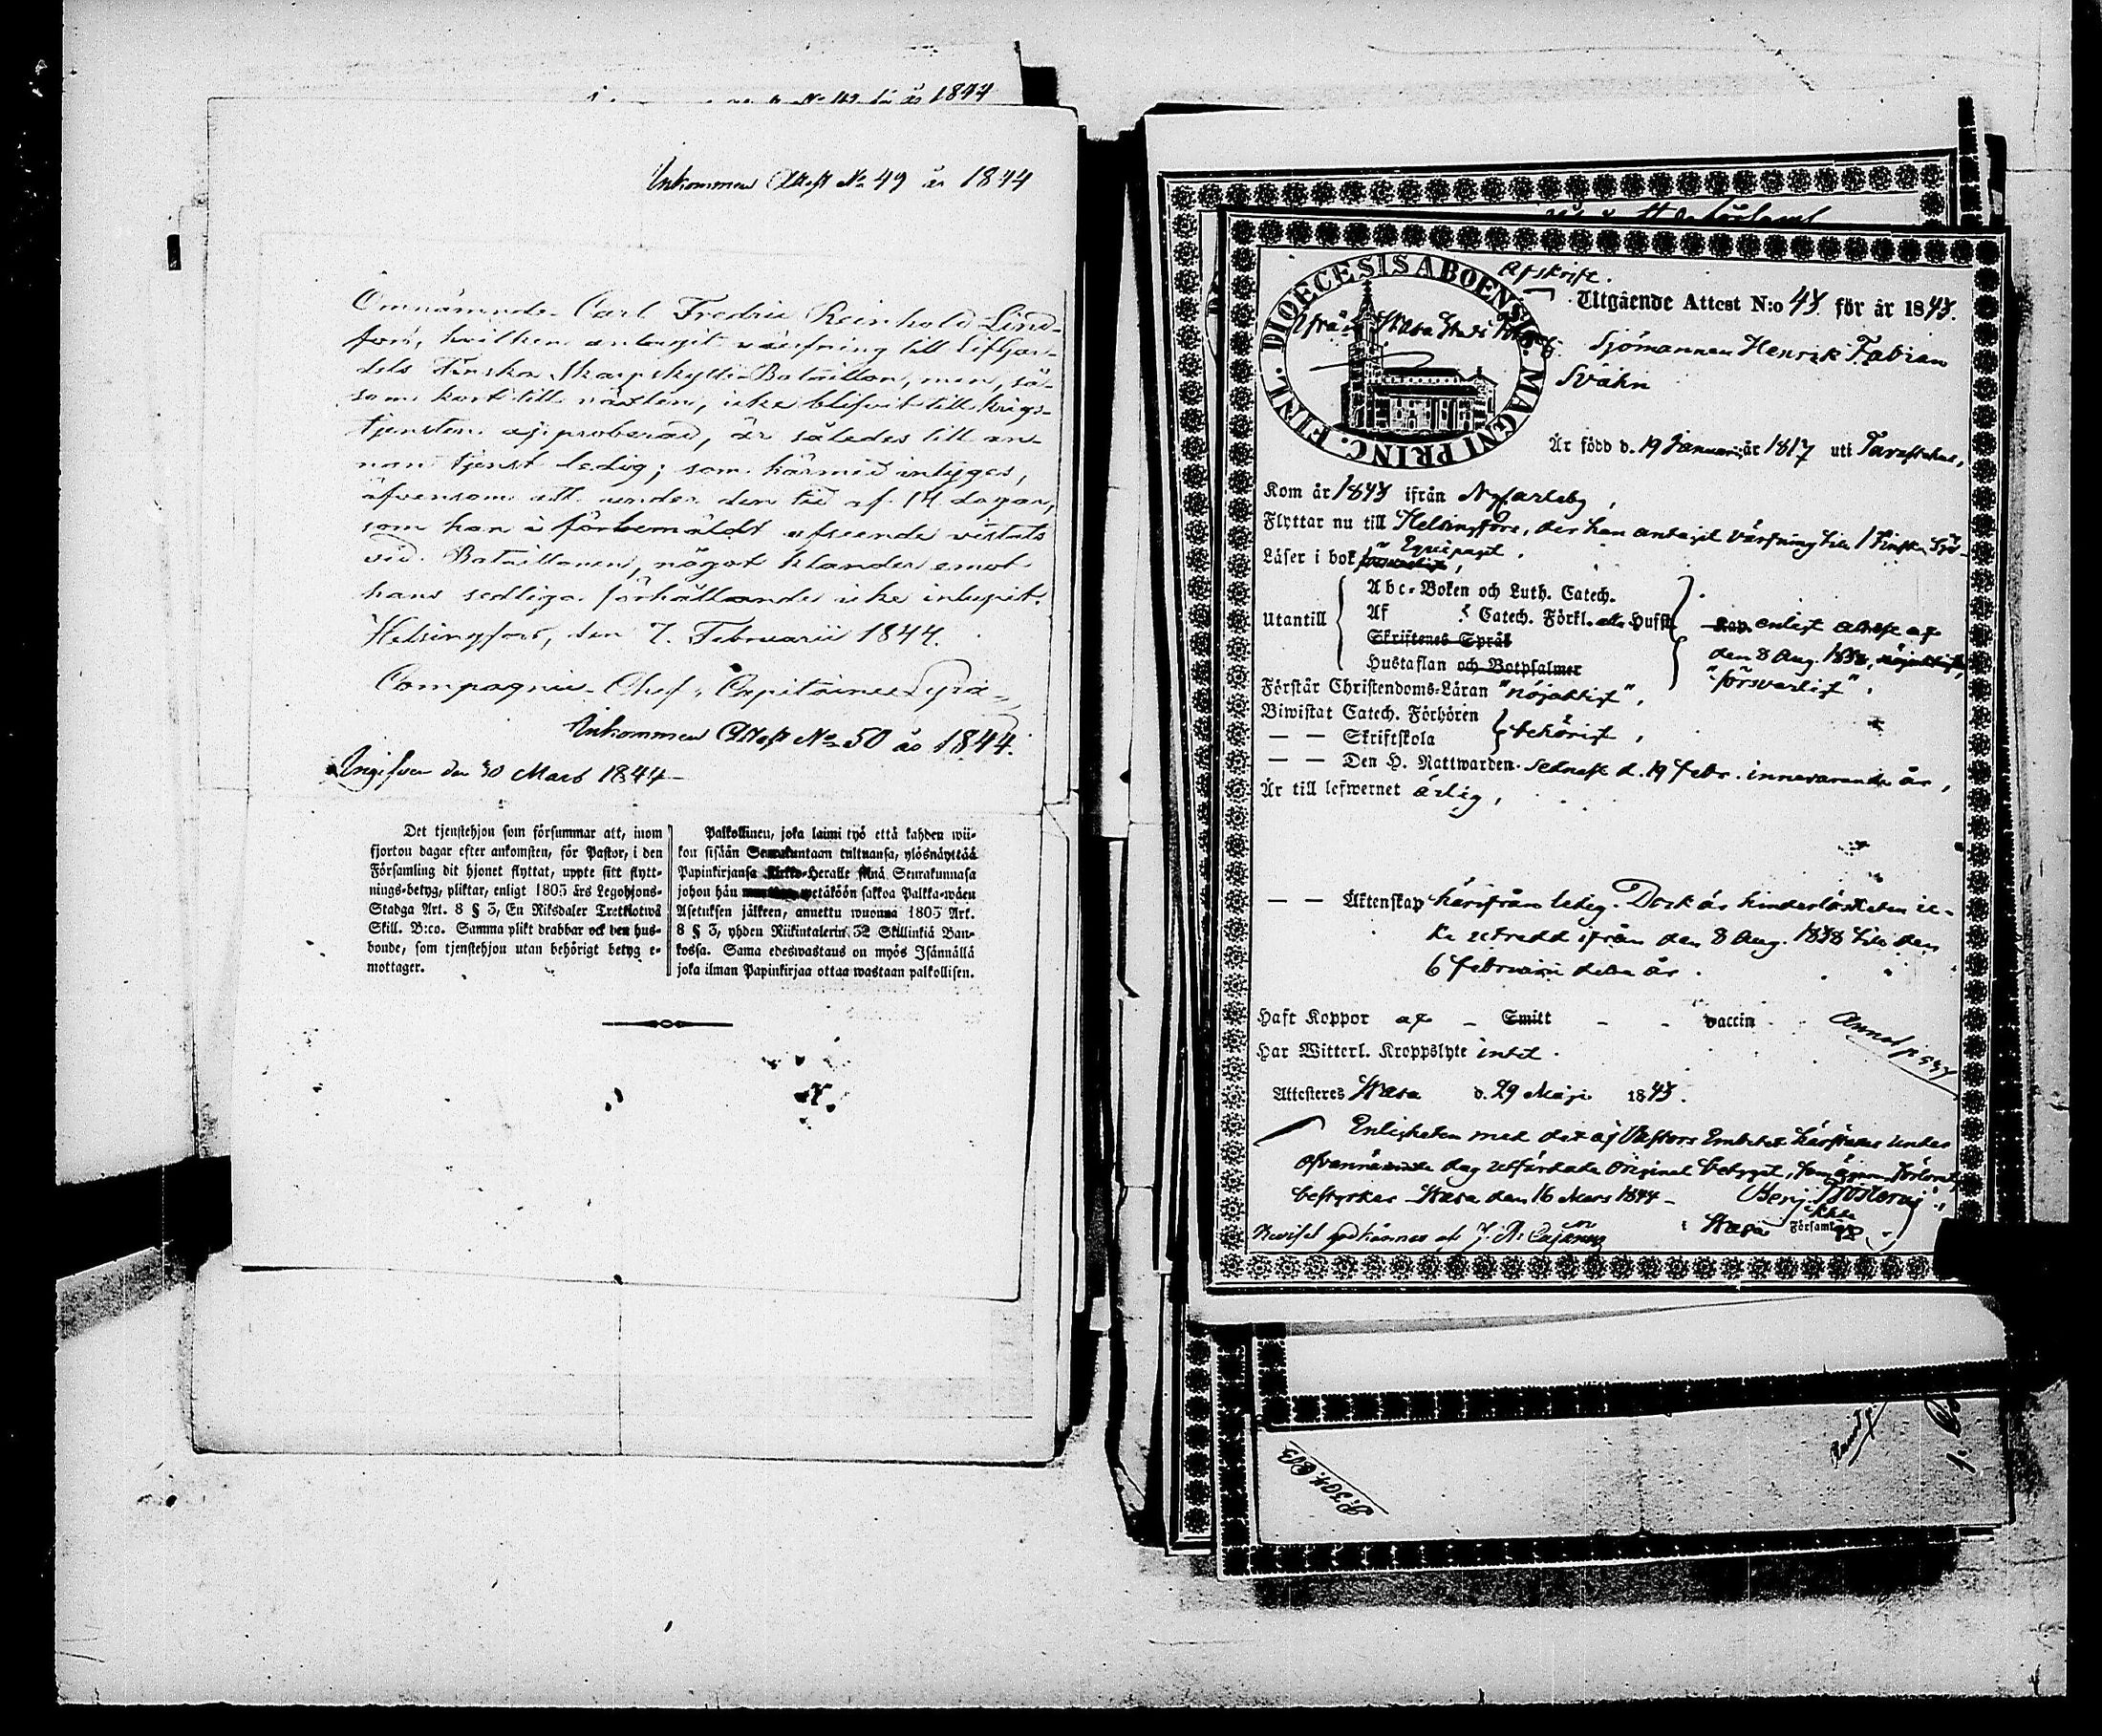 år 1844
Inkommen Attest No 49 år 1844
Omnämnde Carl Fredric Reinhold Lind-
fors, hvilken antagit värfning till Lifgar-
dets Finska Skarpskytte-Bataillon, men, så-
som kort till växten, icke blifvit till krigs-
tjensten approberad, är således till an-
nan tjenst ledig; som härmed intygas,
äfvensom att under den tid af 14 dagar,
som han i förbemäldt afseende vistats
vid Bataillonen, något klander emot
hans sedliga förhållande icke inlupit.
Helsingfors, den 7. Februarii 1844.
Compagnie-Chef, Capitaine
Inkommen Attest No 50 år 1844.
Ingifven den 30 Mars 1844
Det tjenstehjon som försummar att, inom
fjorton dagar efter ankomsten, för Pastor, i den
Församling dit hjonet flyttat, uppte sitt flytt-
nings-betyg, pliktar, enligt 1805 års Legohjons-
Stadga Art. 8 § 3, En Riksdaler Trettiotwå
Skill. B:co. Samma plikt drabbar ock den hus-
bonde, som tjenstehjon utan behörigt betyg e-
mottager.
Palkollinen, joka laimi työ että kahden wii-
kon sisään Seurakuntaan tultuansa, ylösnäyttää
Papinkirjansa Kirkko-Herralle siinä Seurakunnasa
johon hän wetäköön sakkoa Palkka-wäen
Asetuksen jälkeen, annettu wuonna 1805 Art.
8 § 3, yhden Riikintalerin 32 Skillinkiä Ban-
kossa. Sama edeswastaus on myös Isännällä
joka ilman Papinkirjaa ottaa wastaan palkollisen.
DIOECESIS ABOENSIS. MAGNI PRINC. FINL.
Afskrift.
Utgående Attest N:o 43 för år 1843.
ifrån Wasa Stads
Sjömannen Henrik Fabian
Svahn
Är född d. 19 Januari år 1817 uti Tavastehus,
Kom år 1843 ifrån Nykarleby,
Flyttar nu till Helsingfors, der han antagit värfning till 1 Finska Sjö-
Equipaget.
Läser i bok försvarligt,
Utantill
Abc-Boken och Luth. Catech.
Af Catech. Förkl. alla Hufst. Kap. enligt attest af
Skriftenes Språk
den 8 Aug. 1838,
Hustaflan och Botpsalmer
"försvarligt".
Förstår Christendoms-Läran "nöjaktigt",
Biwistat Catech. Förhören
— — Skriftskola behörigt,
— — Den H. Nattwarden sednast d. 19 Febr. innevarande år,
Är till lefwernet ärlig,
— — Äktenskap härifrån ledig. Dock är hinderlösheten ic-
ke utredd ifrån den 8 Aug. 1838 till den
6 Februarii detta år.
Haft Koppor af - Smitt - - vaccin
Har Witterl. Kroppslyte intet.
Attesteres Wasa d. 29 Maji 1843.
Enligheten med det af Pastors Embetet härstädes under
ofvannämnde dag utfärdade Original betyget, som förlorat,
bestyrker Wasa den 16 Mars 1844
i Wasa Församling
P. 304